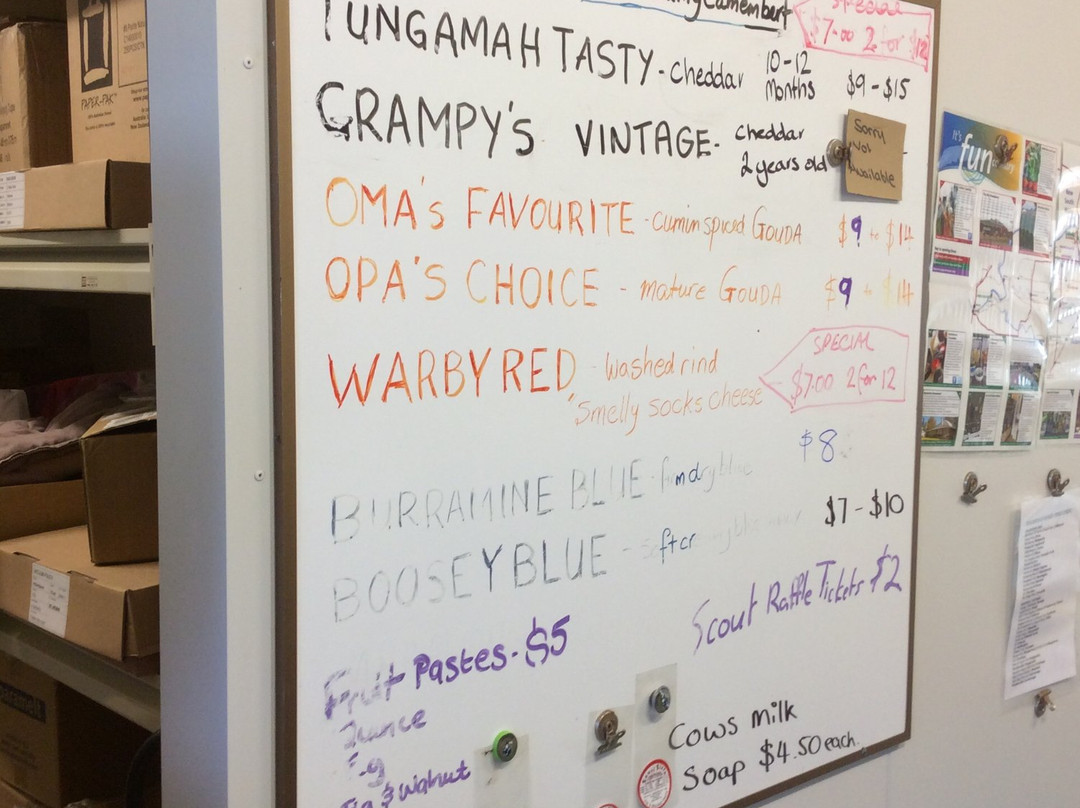 Camembert
Special
$7.00 2 for $12
TUNGAMAH TASTY - cheddar 10-12 Months $9 - $15
GRAMPY'S VINTAGE - cheddar 2 years old
Sorry Not Available
OMA'S FAVOURITE - cumin spiced GOUDA $9 - $14
OPA'S CHOICE - mature GOUDA $9 - $14
WARBY RED - washed rind
"Smelly socks cheese
SPECIAL
$7.00 2 for 12
BURRAMINE BLUE - $8
BOOSEY BLUE - $7 - $10
Scout Raffle Tickets $2
Fruit Pastes - $5
Quince
Fig
Fig & walnut
Cows milk
Soap $4.50 each.
It's
fun
PAPER-PAK